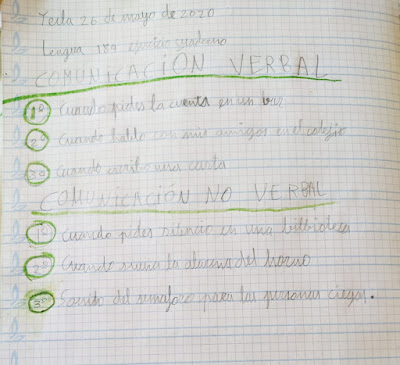 Yecla 26 de mayo de 2020
Lengua 189 ejercicio cuaderno
COMUNICACIÓN VERBAL
1º Cuando pides la cuenta en un bar
2º Cuando hablo con mis amigos en el colegio
3º Cuando escribo una carta
COMUNICACIÓN NO VERBAL
1º Cuando pides silencio en una biblioteca
2º Cuando suena la alarma del horno
3º Sonido del semaforo para las personas ciegas.